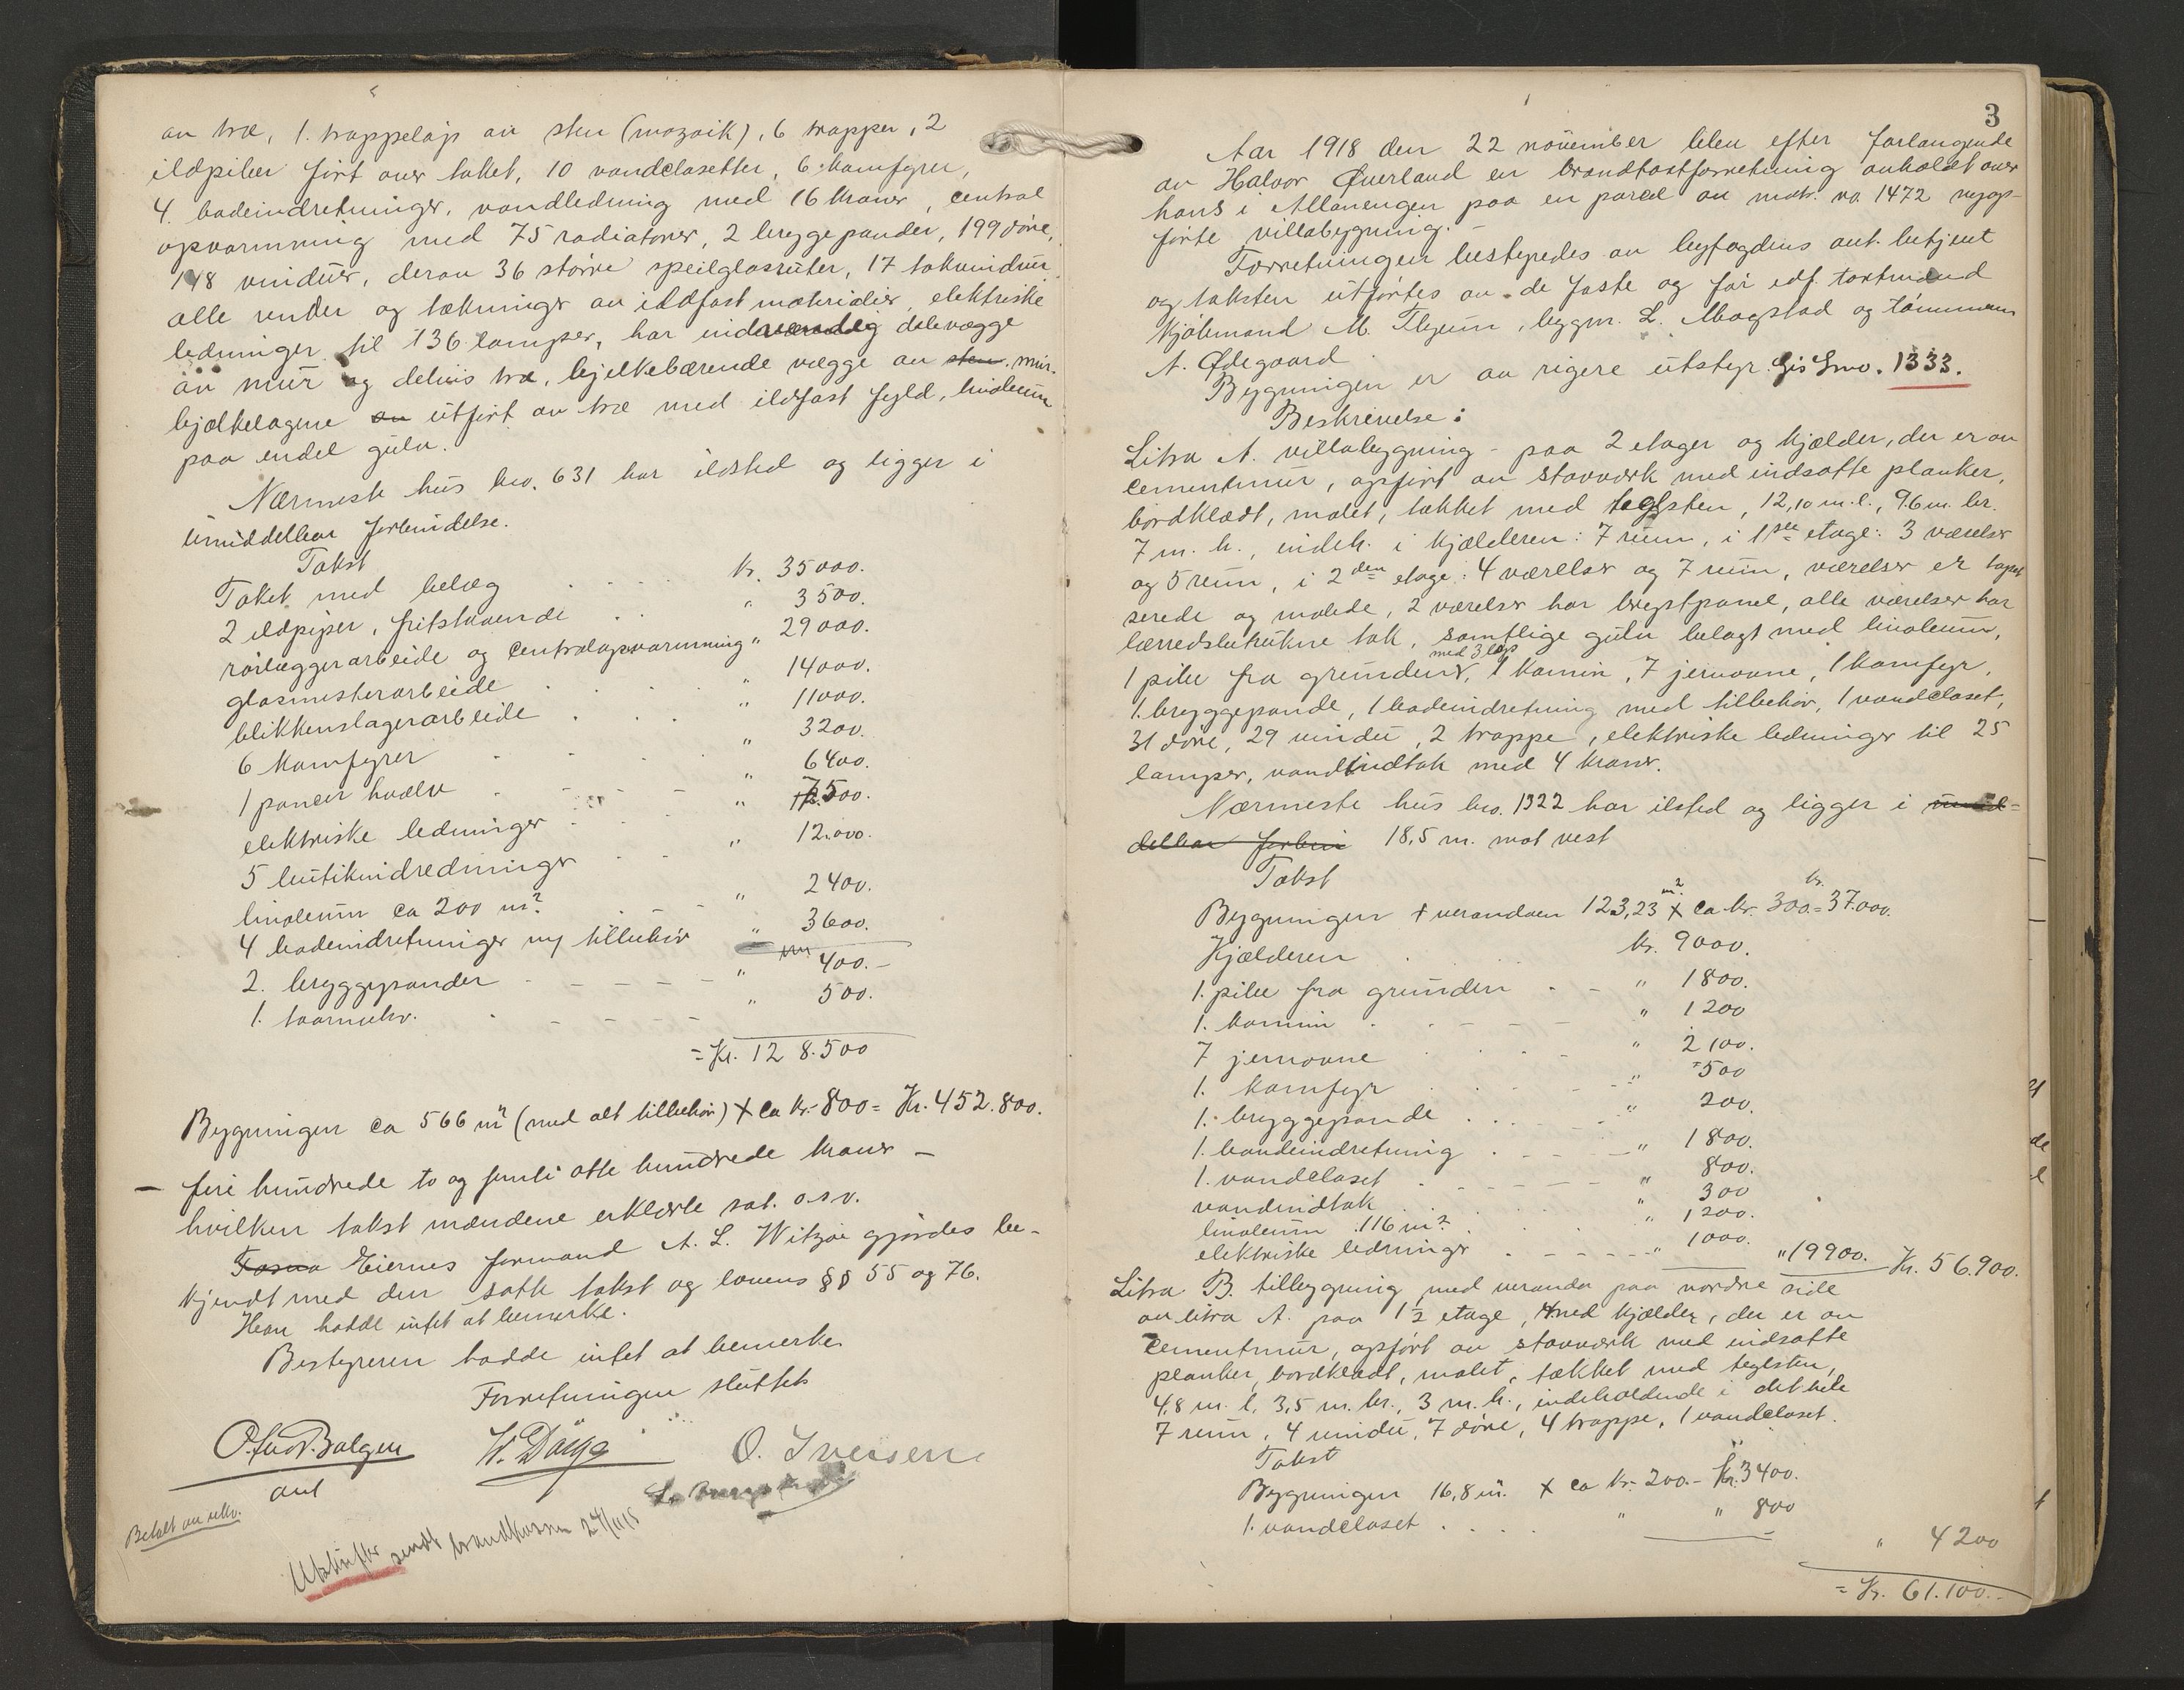 av træ, 1. trappeløp av sten (mozaik), 6 trapper, 2
ildpiber ført over taket, 10 vandclosetter, 6 komfyrer,
4. badeindretninger, vandledning med 16 kraner, central
opvarmning med 75 radiatorer, 2 bryggepander, 199 døre,
148 vinduer, derav 36 større speilglasruter, 17 takvinduer
alle render og tækninger av ildfast materialier, elektriske
ledninger til 136 lamper, har indvendig delevægge
av mur og delvis træ, bjelkebærende vægge av sten mur.
bjælkelagene av utført av træ med ildfast fyld, linoleum
paa endel gulv.
Nærmeste hus bno. 631 har ildsted og ligger i
umiddelbar forbindelse.
Takst
Taket med belæg kr. 35000.
2 ildpiper, fritstaaende " 3500.
rørlæggerarbeide og centralopvarmning " 29000.
glasmesterarbeide " 14000.
blikkenslagerarbeide " 11000.
6 komfyrer " 3200.
1 pancer hvælv " 6400.
elektriske ledninger " 7500.
5 butikindredninger " 12.000.
linoleum ca 200 m² " 2400.
4 badeindretninger m/ tilbehør " 3600.
2. bryggepander " 400.-
1. " 500.
= Kr. 128.500
Bygningen ca 566 m² (med alt tilbehør) x ca kr. 800 = Kr. 452.800.
– fire hundrede to og femti otte hundrede kroner –
hvilken takst mændene erklærte sat. o.s.v.
Eiernes formand A. L. Witzøe gjordes be-
kjendt med den satte takst og lovens §§ 55 og 76.
Han hadde intet at bemerke.
Bestyreren hadde intet at bemerke.
Forretningen sluttet
W. Döhge O. Iversen
aut
Betalt av rekv.
Utskrifter sendt brandkassen 27/11 18
3
Aar 1918 den 22 november blev efter forlangende
av Halvor Øverland en brandtastforretning avholdt over
hans i Allanengen paa en parcel av matr. no. 1472 nyop-
førte villabygning. –
Forretningen bestyredes av byfogdens aut. betjent
og taksten utførtes av de faste og før edf. taxtmænd
kjøbmand M. Thyum, byggm. L. Magstad og tømmerm
A. Ødegaard.
Bygningen er av rigere utstyr. 1333.
Beskrivelse:
Litra A. villabygning – paa 2 etager og kjælder, der er av
cementmur, opført av stavværk med indsatte planker,
bordklædt, malet, tækket med teglsten, 12,10 m. l., 9.6 m. br.
7 m. h., indeh. i kjælderen: 7 rum, i 1ste etage: 3 værelser
og 5 rum, i 2den etage: 4 værelser og 7 rum, værelser er tapet
serede og malede, 2 værelser har brystpanel, alle værelser har
lærredsbetrukne tak, samtlige gulv belagt med linoleum,
1 pibe fra grunden med 3 løp, 1 kamin, 7 jernovne, 1 komfyr,
1. bryggepande, 1 badeindretning med tilbehør, 1 vandcloset,
31 døre, 29 vinduer, 2 trappe, elektriske ledninger til 25
lamper, vandindtak med 4 kraner.
Nærmeste hus bno. 1322 har ilsted og ligger i umid-
delbar forbin 18,5 m. mot vest
Takst
Bygningen + verandaen 123,23 m² x ca kr. 300.= kr. 37.000.
Kjælderen kr. 9000.
1. pibe fra grunden " 1800.
1. kamin " 1200
7 jernovne " 2100.
1. komfyr " 500
1. bryggepande " 200.
1. badeindretning " 1800.
1. vandcloset " 800.
vandindtak " 300
linoleum 116 m² " 1200.
elektriske ledninger " 1000. " 19900. Kr. 56.900.
Litra B. tilbygning med veranda paa nordre side
av litra A. paa 1½ etage, med kjælder, der er av
cementmur, opført av stavværk med indsatte
planker, bordklædt, malet, tækket med teglsten,
4,8 m. l. 3,5 m. br., 3 m. h., indeholdende i det hele
7 rum, 4 vinduer, 7 døre, 4 trappe, 1 vandcloset.
Takst
Bygningen 16,8 m². x ca kr. 200.- Kr. 3400.
1. vandcloset " " 800
" 4200
= Kr. 61.100.-